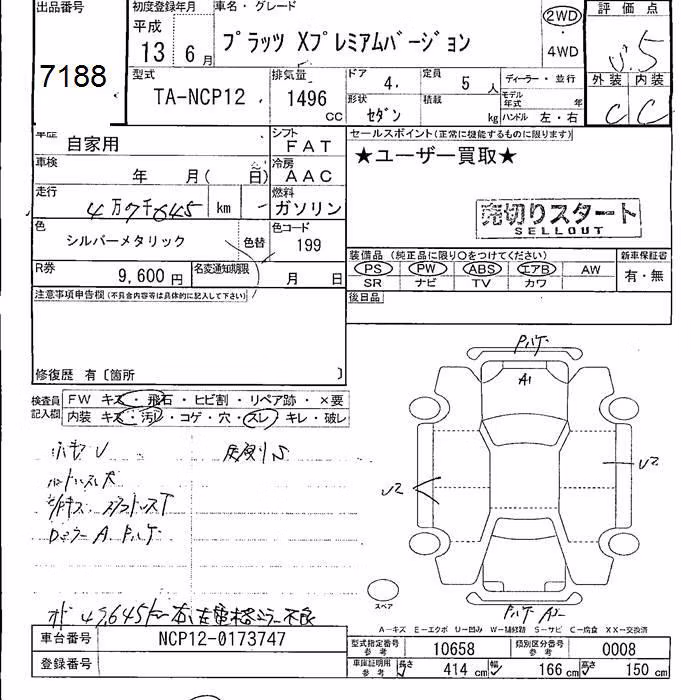 出品番号
7188
初度登録年月
平成
13 6月
車名・グレード
プラッツ Xプレミアムバージョン
2WD
・
4WD
評価点
3.5
外装 内装
C C
型式
TA-NCP12
排気量
1496
CC
ドア 4.
定員 5人
形状 セダン
積載 kg
ディーラー・並行
モデル年式 年
ハンドル 左・右
車歴 自家用
シフト FAT
車検 年 月( 日)
冷房 AAC
走行 4万9千645 km
燃料 ガソリン
色 シルバーメタリック
色替
色コード 199
R券 9,600円
名変通知期限 月 日
注意事項申告欄(不具合内容等は具体的に記入して下さい)
修復歴 有〔箇所 〕
セールスポイント(正常に機能するものに限ります)
★ユーザー買取★
売切りスタート
SELLOUT
装備品(純正品に限り○をつけてください)
PS PW ABS エアB AW
SR ナビ TV カワ
新車保証書
有・無
後日品
検査員記入欄
FW キズ・飛石・ヒビ割・リペア跡・×要
内装 キズ・汚レ・コゲ・穴・スレ・キレ・破レ
A1
U2
U2
スペア
A-キズ E-エクボ U-凹み W-補修跡 S-サビ C-腐食 XX-交換済
車台番号 NCP12-0173747
登録番号
型式指定番号 参考 10658
類別区分番号 参考 0008
車庫証明用 参考 長さ 414 cm 幅 166 cm 高さ 150 cm